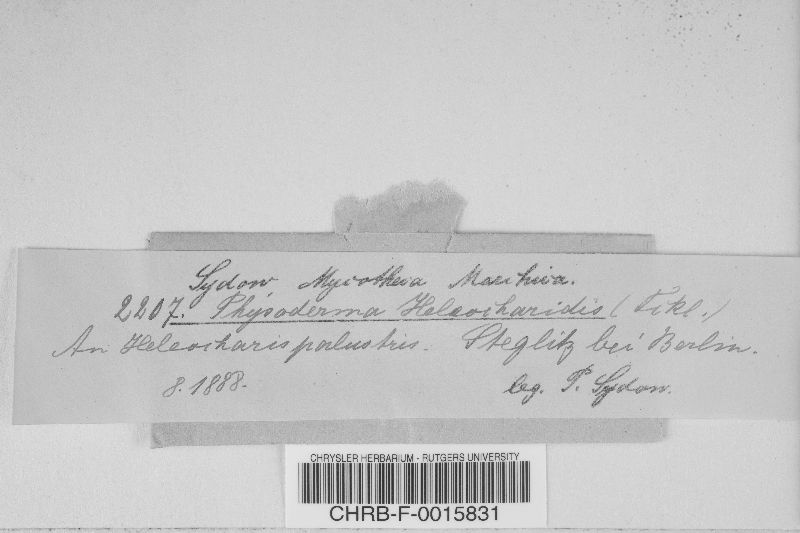 Sydow Mycotheca Marchica.
2207. Physoderma Heleocharidis (Fckl.)
An Heleocharis palustris. Steglitz bei Berlin.
8. 1888. leg. P. Sydow.
CHRYSLER HERBARIUM - RUTGERS UNIVERSITY
CHRB-F-0015831